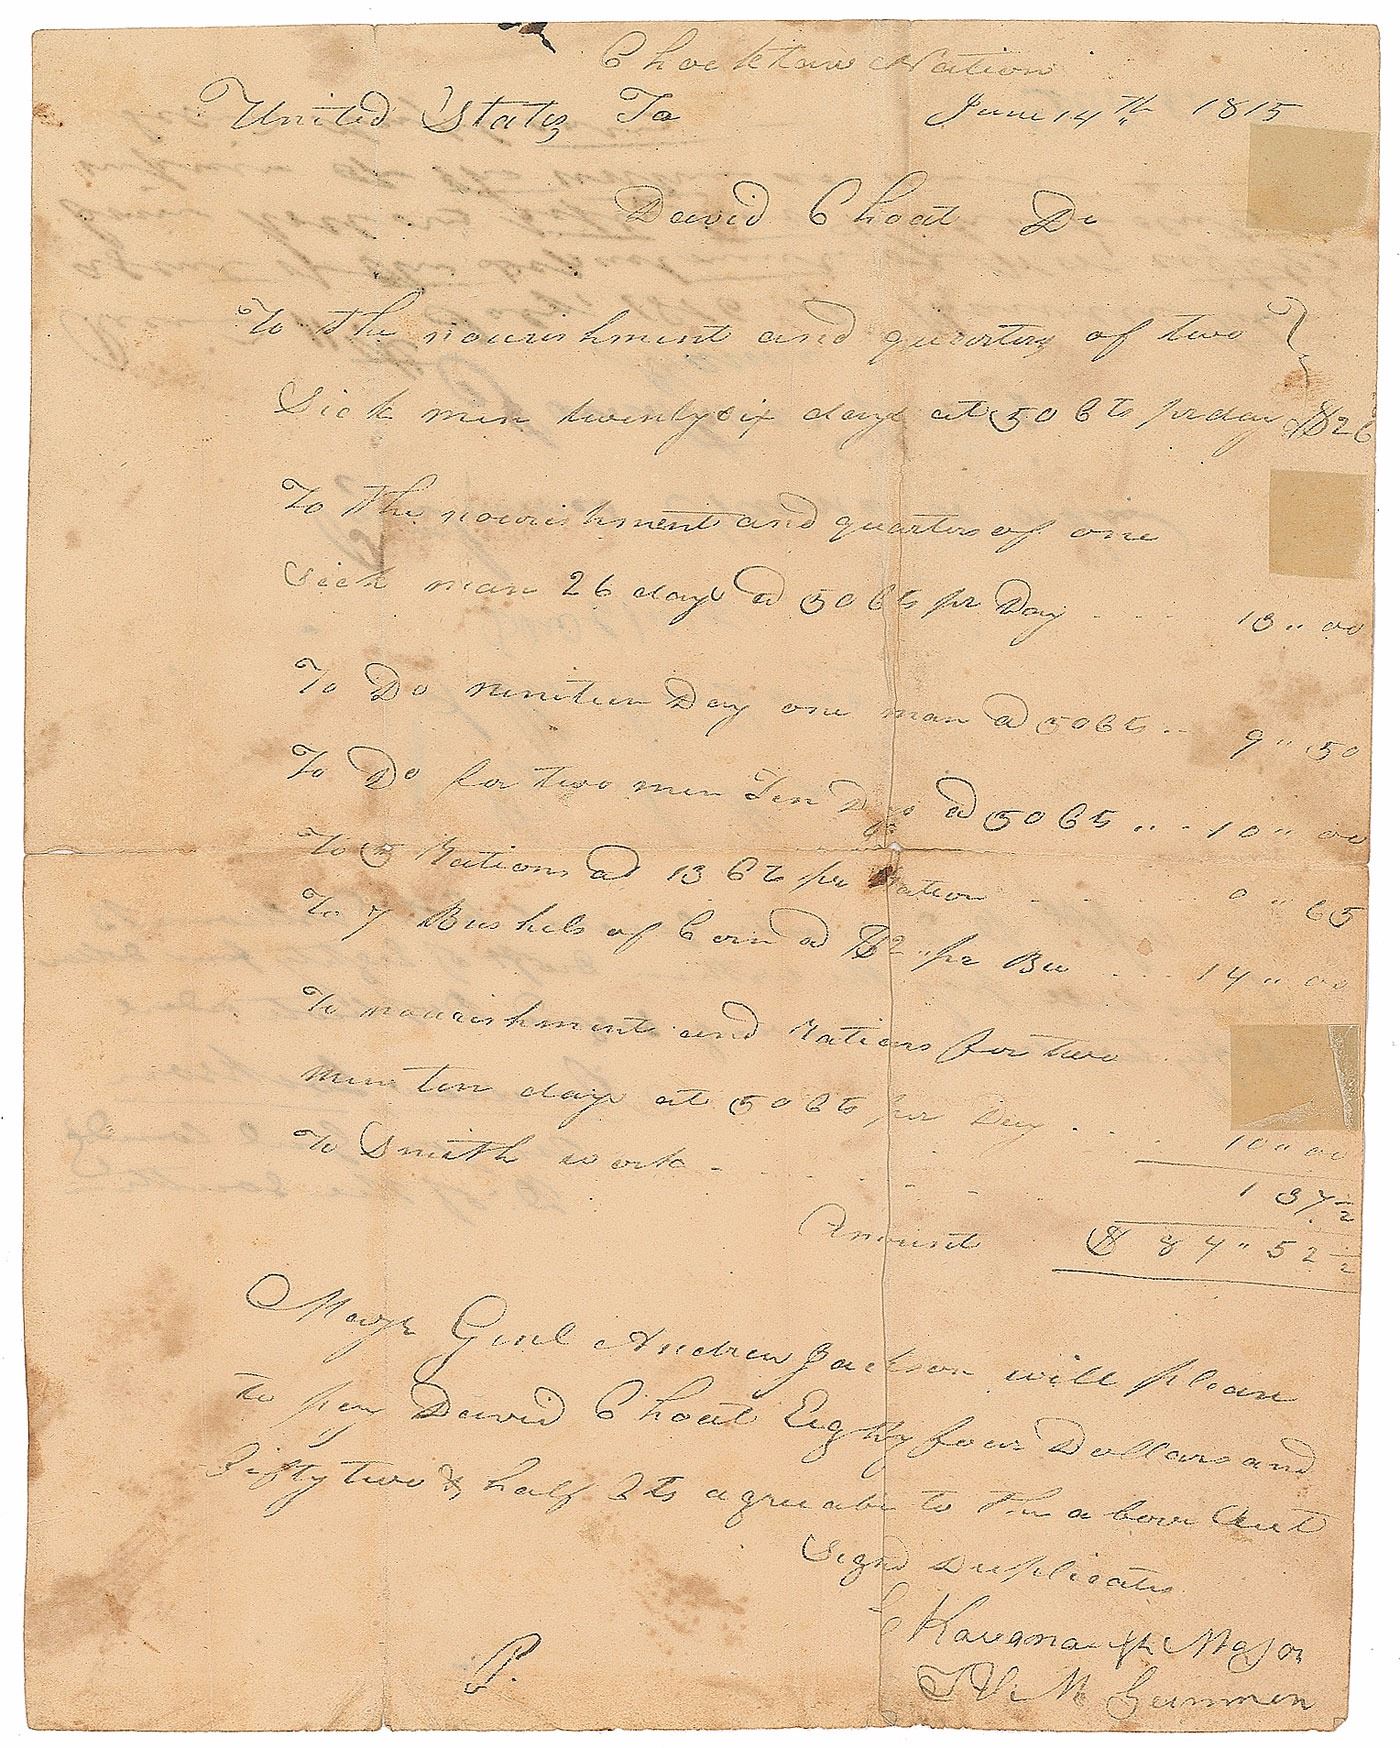 Chocktaw Nation
United States To June 14th 1815
David Choat Dr
To the nourishment and quarters of two
Sick men twenty six days at 50 Cts pr day $26
To the nourishment and quarters of one
Sick man 26 days @ 50 Cts pr Day 13 " 00
To Do nineteen Day one man @ 50 Cts 9 " 50
To Do for two men Ten Days @ 50 Cts 10 " 00
To 5 Rations @ 13 Cts pr Ration 0 " 65
To 7 Bushels of Corn @ $2 " pr Bu 14 " 00
To nourishment and Rations for two
men ten days at 50 Cts per Day 10 " 00
To Smith work 1 37 1/2
Amount $ 84 " 52 1/2
Major Genl Andrew Jackson will please
to pay David Choat Eighty four Dollars and
Fifty two & half Cts agreeabe to the above Acct
Signd Duplicates
Kavanaugh Major